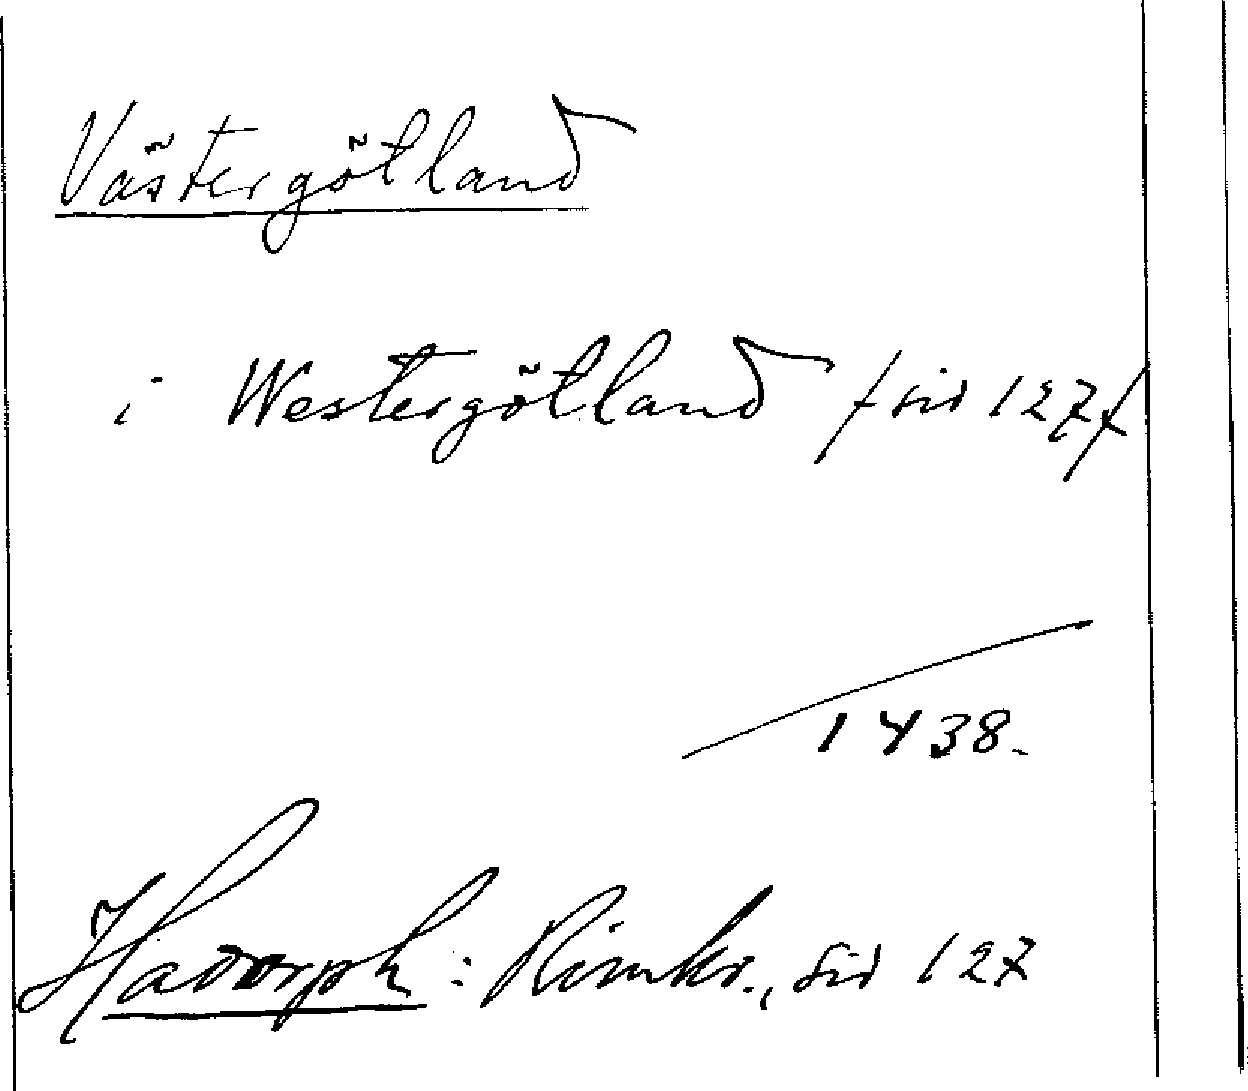 Västergötland
i Westergötland /sid 127/
1438.
Hadorph: Rimkr., sid 127